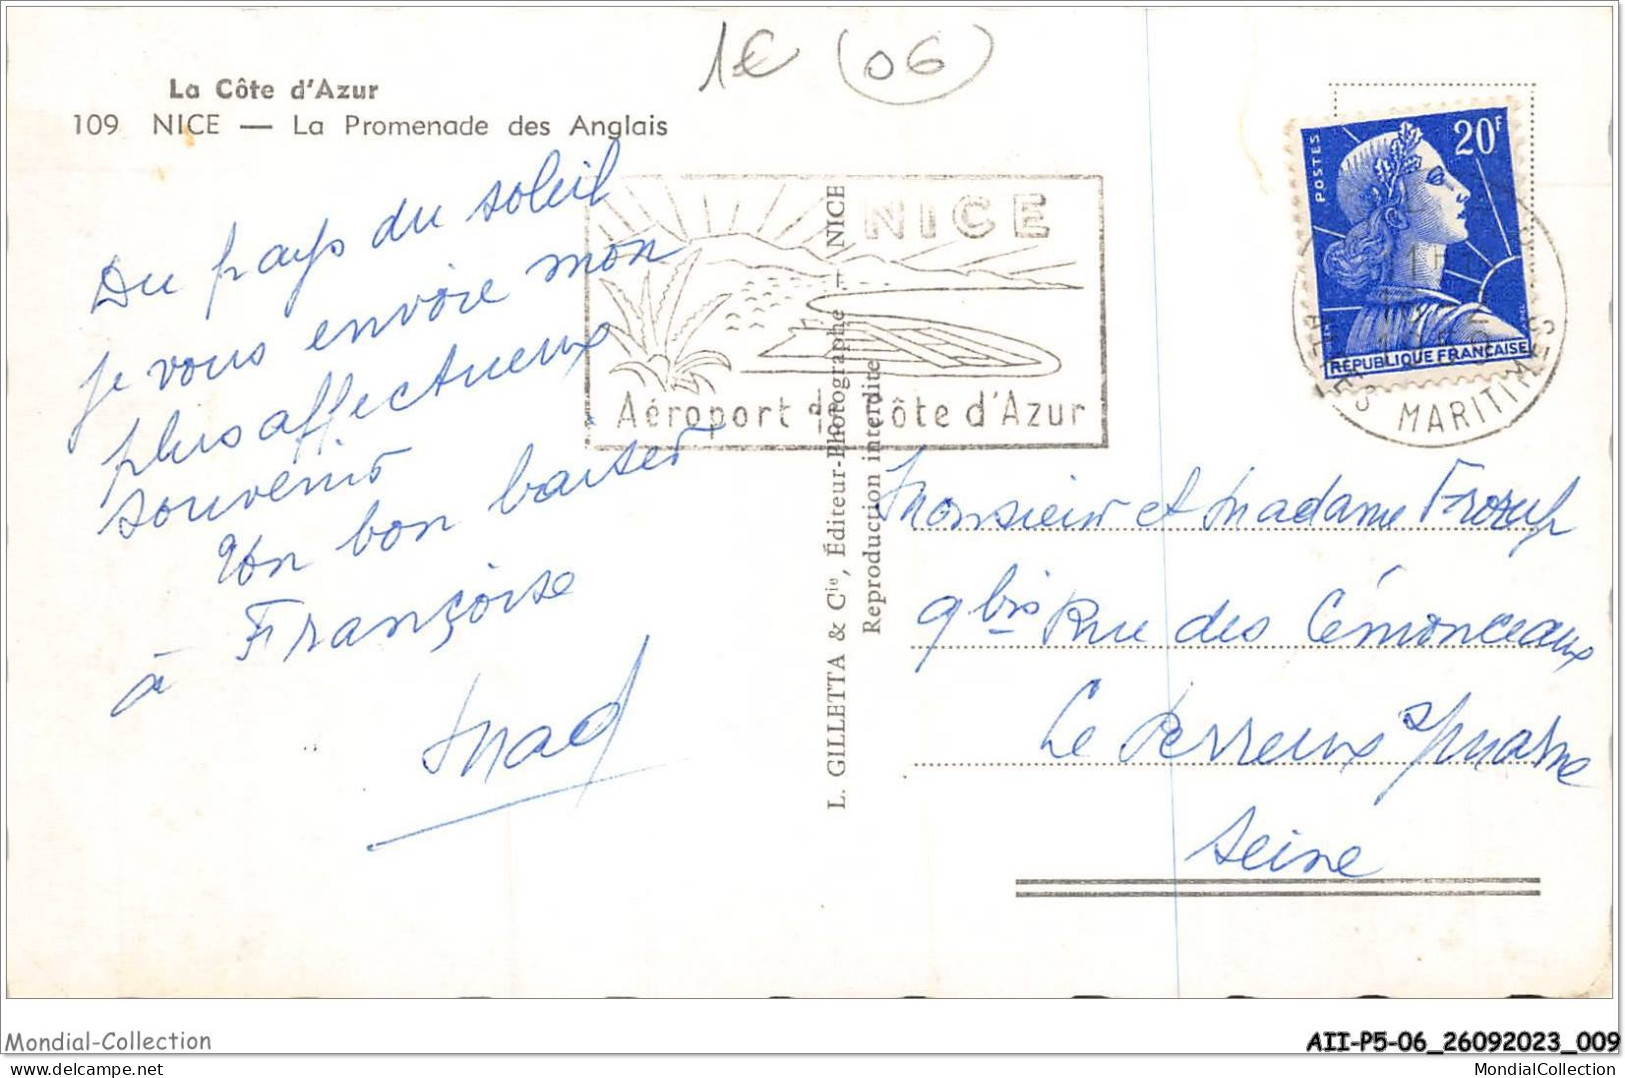 1€ (06)
La Côte d'Azur
109 NICE — La Promenade des Anglais
Du pays du soleil
je vous envoie mon
plus affectueux
souvenir
Un bon baiser
à Françoise
Mad
NICE
Aéroport de Côte d'Azur
L. GILLETTA & Cie, Éditeur-Photographe — NICE
Reproduction interdite
POSTES
20F
REPUBLIQUE FRANÇAISE
ALPES MARITIMES
Monsieur et Madame
9 bis Rue des Cémonceaux
Le Perreux s/ Marne
Seine
Mondial-Collection
AII-P5-06_26092023_009
MondialCollection